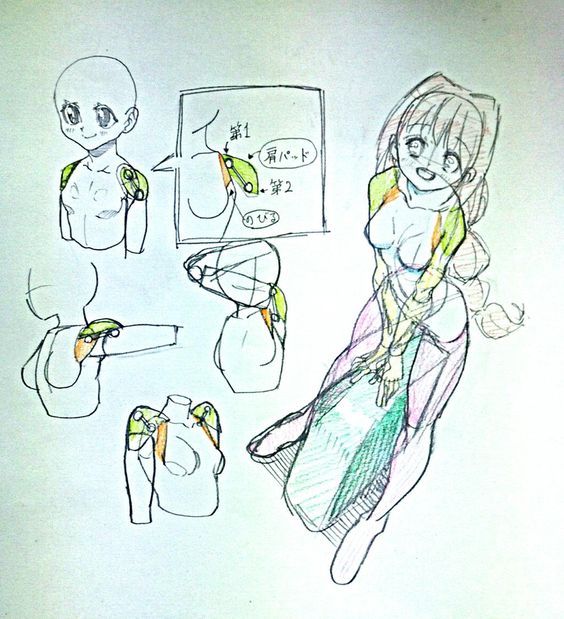 第1
肩パッド
第2
のびる